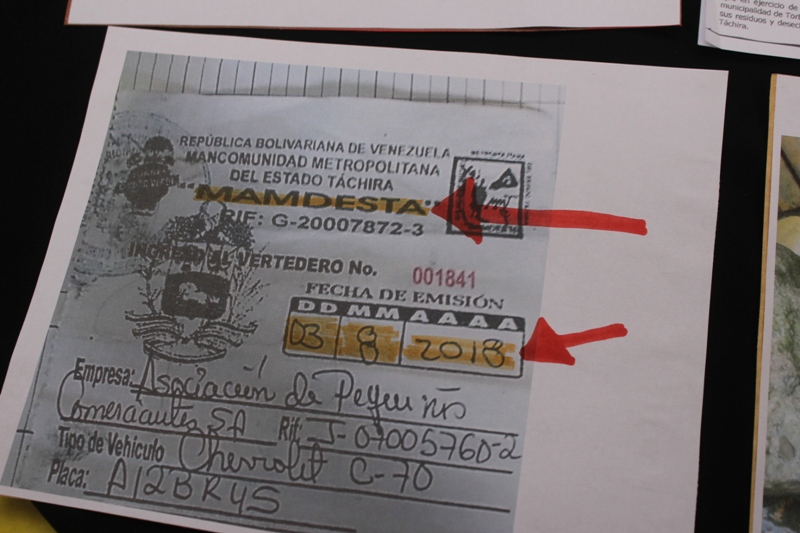 en ejercicio de
municipalidad de Tor
sus residuos y desec
Táchira.
REPÚBLICA BOLIVARIANA DE VENEZUELA
MANCOMUNIDAD METROPOLITANA
DEL ESTADO TÁCHIRA
"MAMDESTA"
RIF: G-20007872-3
INGRESO AL VERTEDERO No. 001841
FECHA DE EMISIÓN
DD MM AAAA
03 8 2018
Empresa: Asociación de Pequeños
Comerciantes SA Rif: J-07005760-2
Tipo de Vehículo Chevrolet C-70
Placa: A12BR4S